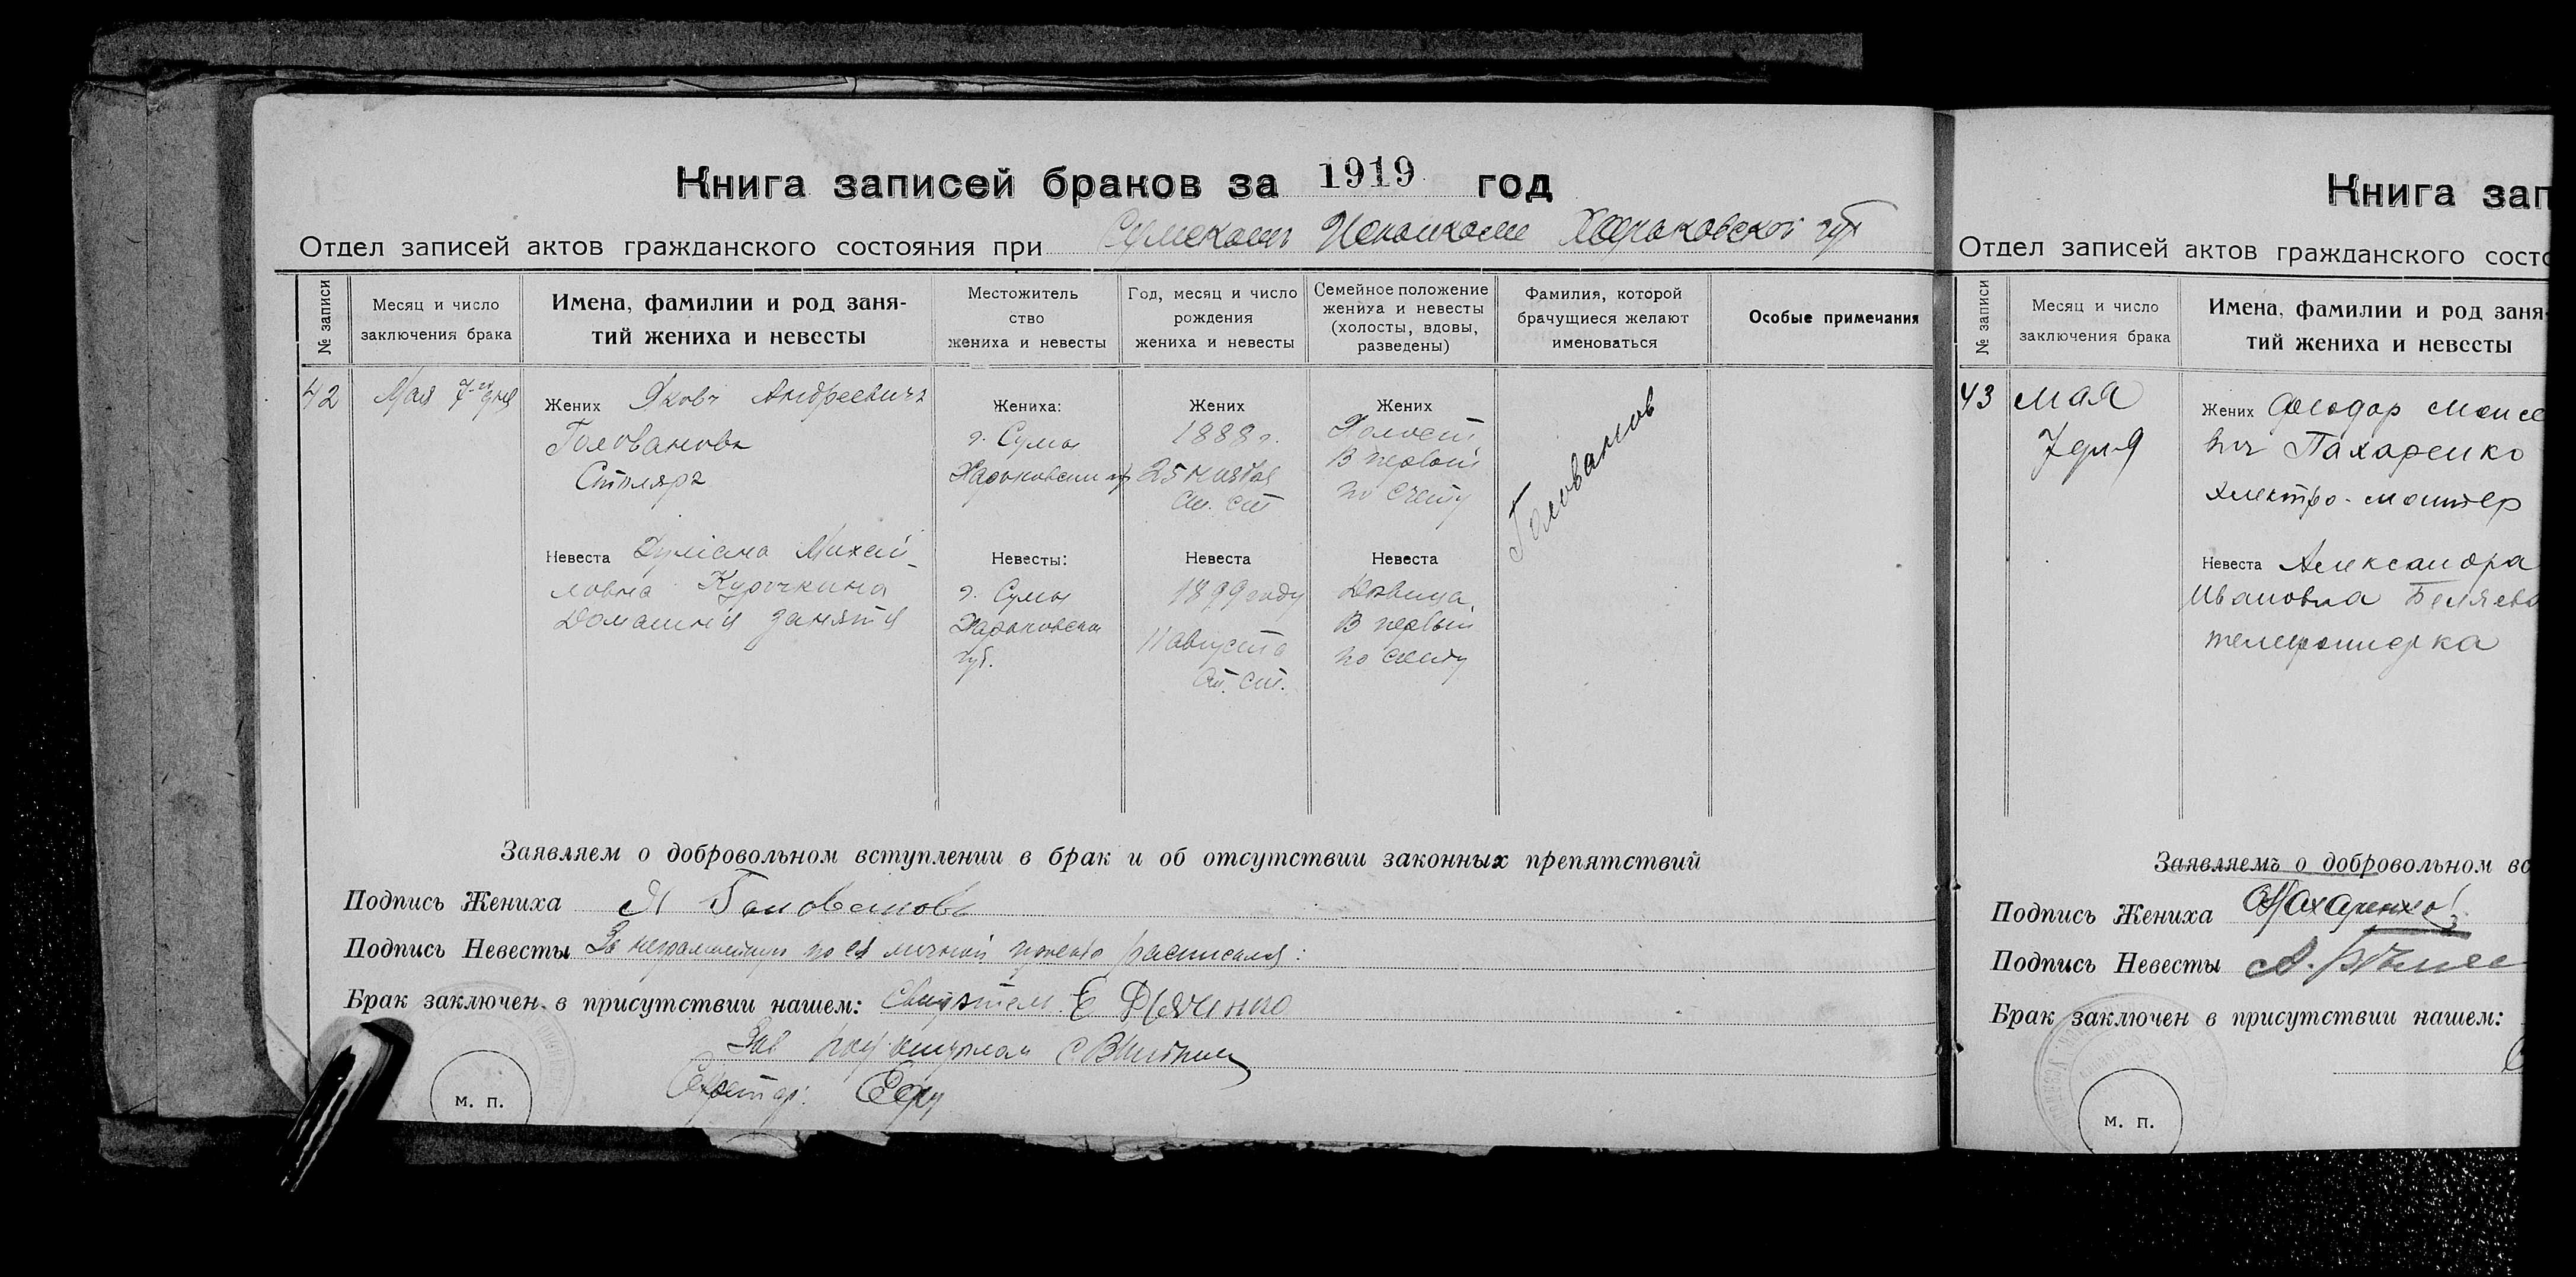 Книга записей браков за 1919 год
Отдел записей актов гражданского состояния при Сумском Исполкоме Харьковской губ
№ записи
Месяц и число заключения брака
Имена, фамилии и род заня-
тий жениха и невесты
Местожитель
ство
жениха и невесты
Год, месяц и число
рождения
жениха и невесты
Семейное положение
жениха и невесты
(холосты, вдовы,
разведены)
Фамилия, которой
брачущиеся желают
именоваться
Особые примечания
42
Мая 7-го дня
Жених Яковъ Андреевичъ
Головановъ
Столяръ
Жениха:
г. Сумы
Харьковской гб
Жених
1888 г.
25
ст. ст
Жених
Холост
В первый
по счету
Голованов
Невеста Михай-
ловна Курочкина
Домашнія занятія
Невесты:
г. Сумы
Харьковская
губ.
Невеста
1899 году
11 августа
ст. ст.
Невеста
Дѣвица,
В первый
по счету
Заявляем о добровольном вступлении в брак и об отсутствии законных препятствий
Подпись Жениха Я Головановъ
Подпись Невесты За неграмотную по ея личной просьбѣ расписался:
Брак заключен в присутствии нашем: Свидѣтель Е Дяченко
Зав
Секретарь:
М. П.
Книга зап
Отдел записей актов гражданского состо
№ записи
Месяц и число
заключения брака
Имена, фамилии и род заня-
тий жениха и невесты
43
мая
7 дня
Жених Феодор Моисее
вич Пахаренко
электро-монтер
Невеста Александра
Ивановна Беляева
телефонистка
Заявляемъ о добровольном вс
Подпись Жениха Пахаренко
Подпись Невесты А. Бѣляе
Брак заключен в присутствии нашем:
М. П.